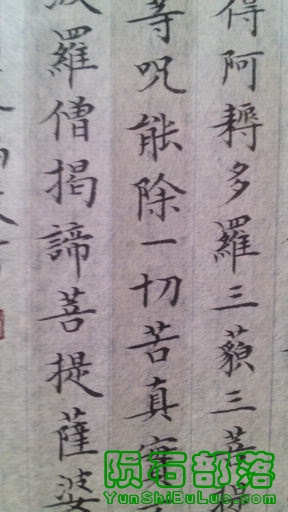 得阿耨多羅三藐三菩
等呪能除一切苦真實
波羅僧揭諦菩提薩婆
陨石部落
YunShiBuLuo.com